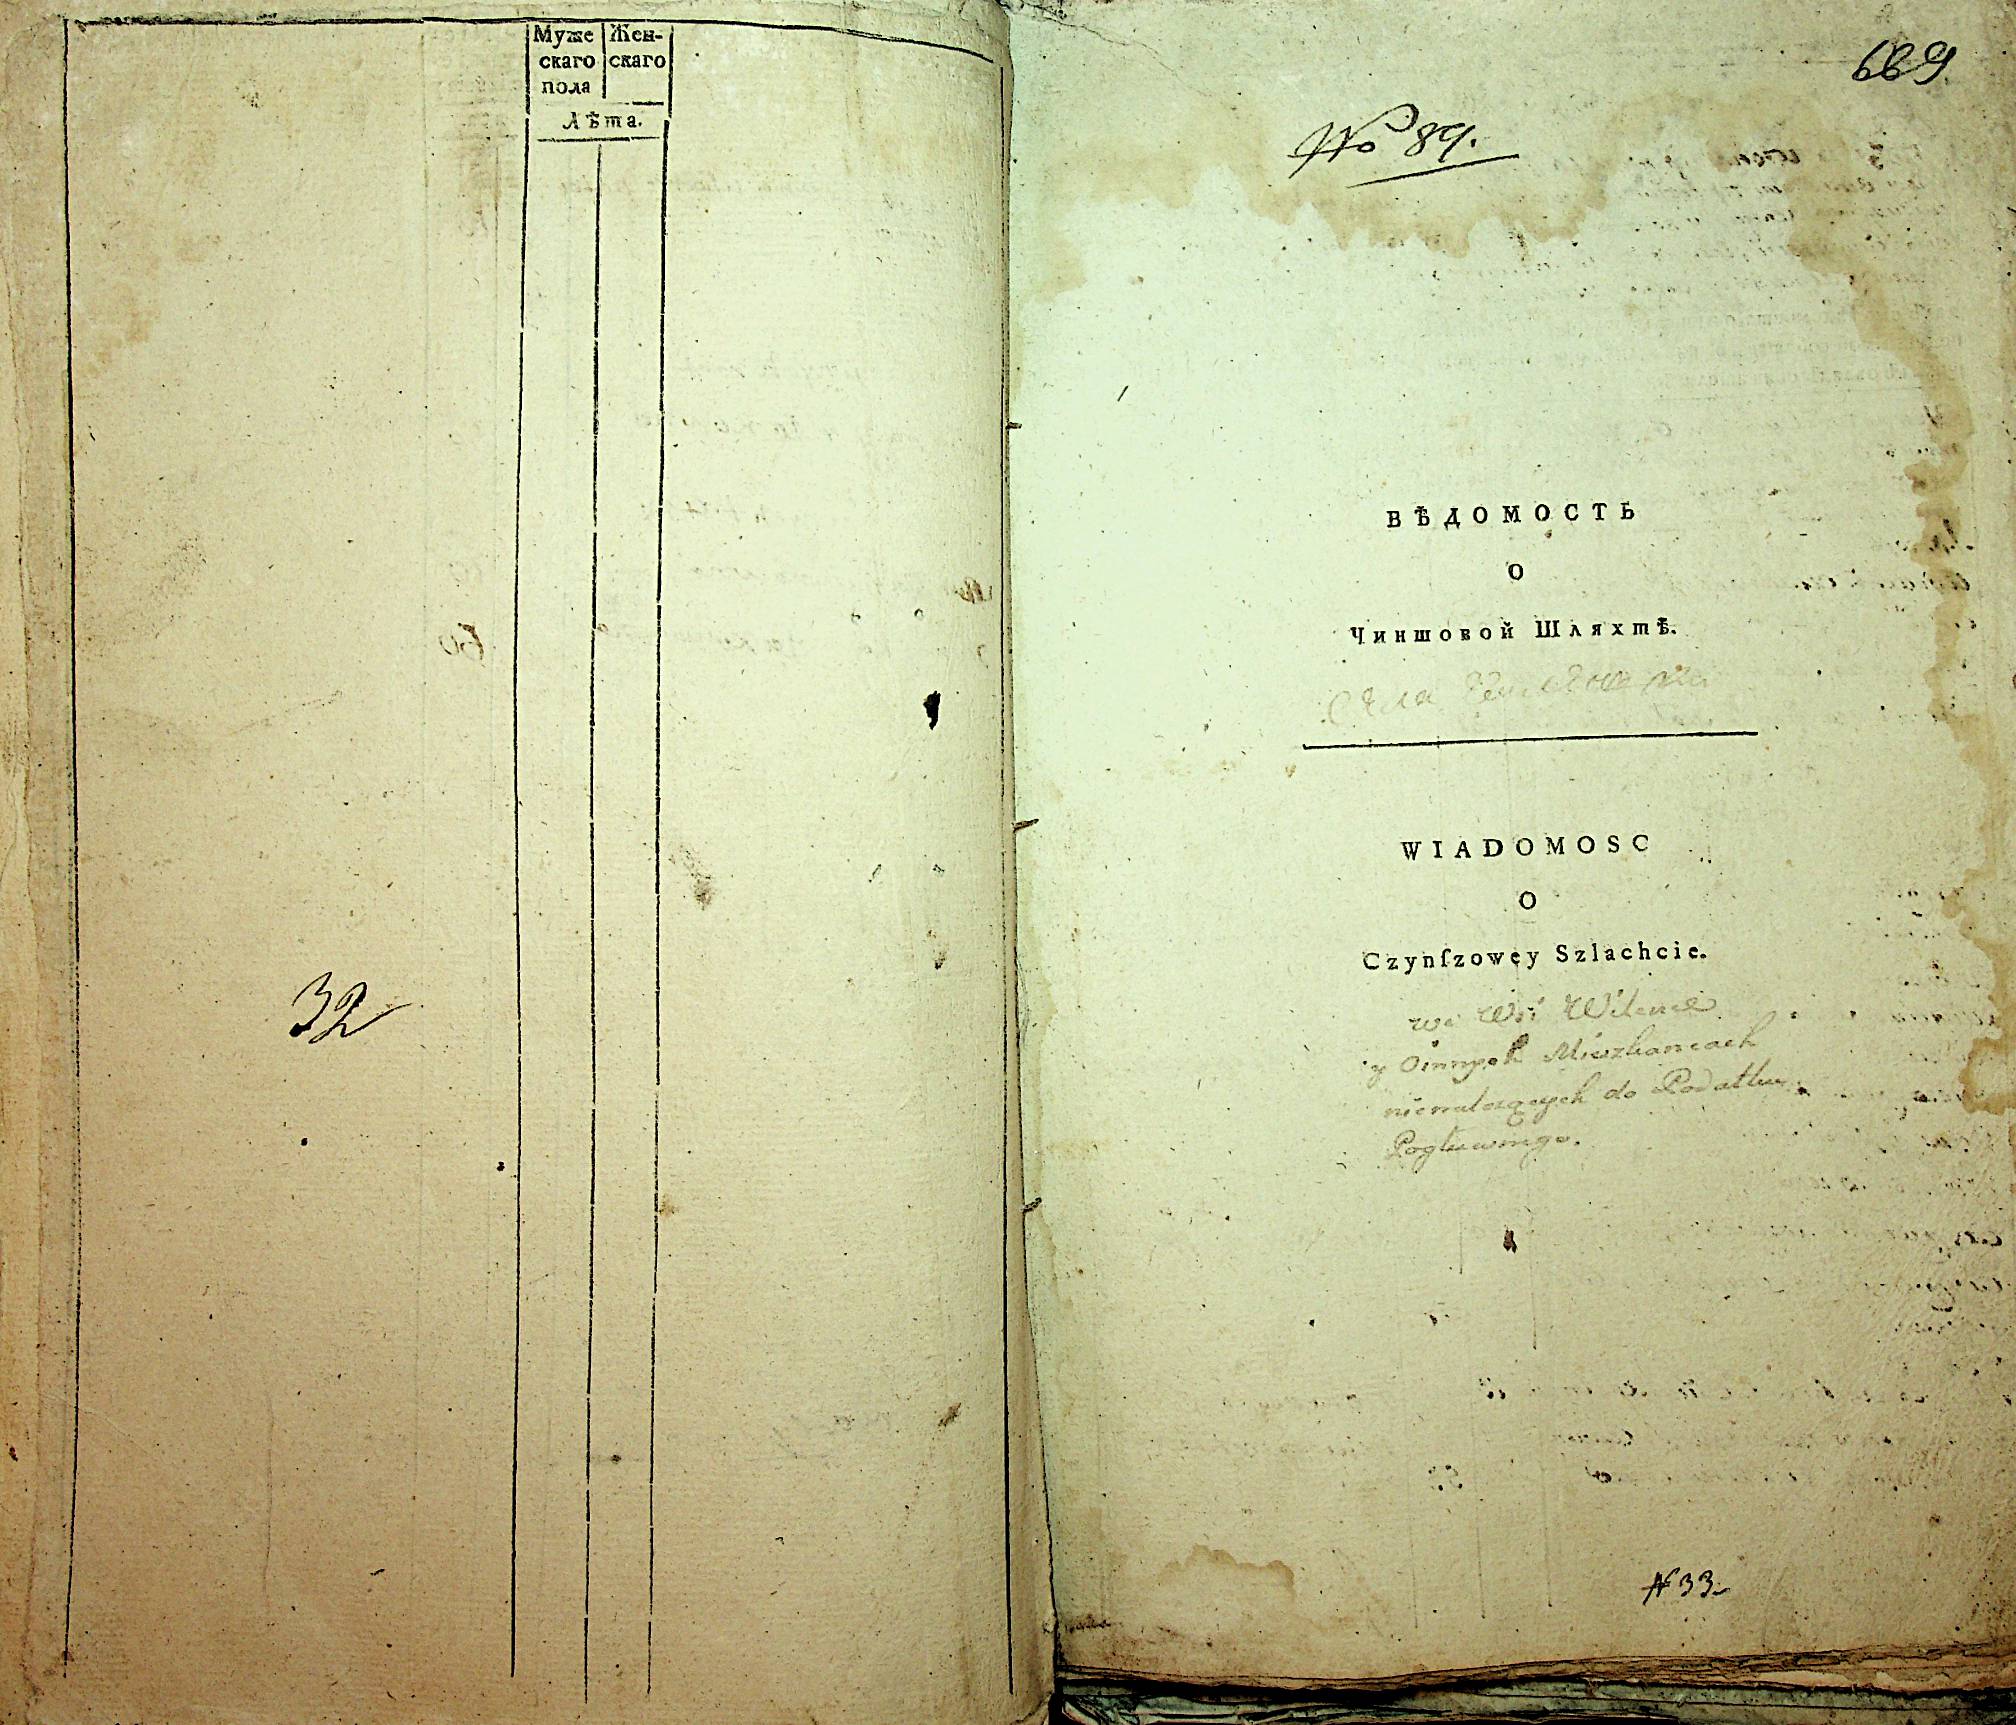 Муже Жен-
скаго скаго
пола
Лѣта.
32
669
№ 89.
ВѢДОМОСТЬ
О
Чиншовой Шляхтѣ.
WIADOMOSC
O
Czynſzowey Szlachcie.
we Wsi
y Oinnych Mieszkancach
nienalezących do Podatku
Pogłownego.
№ 33